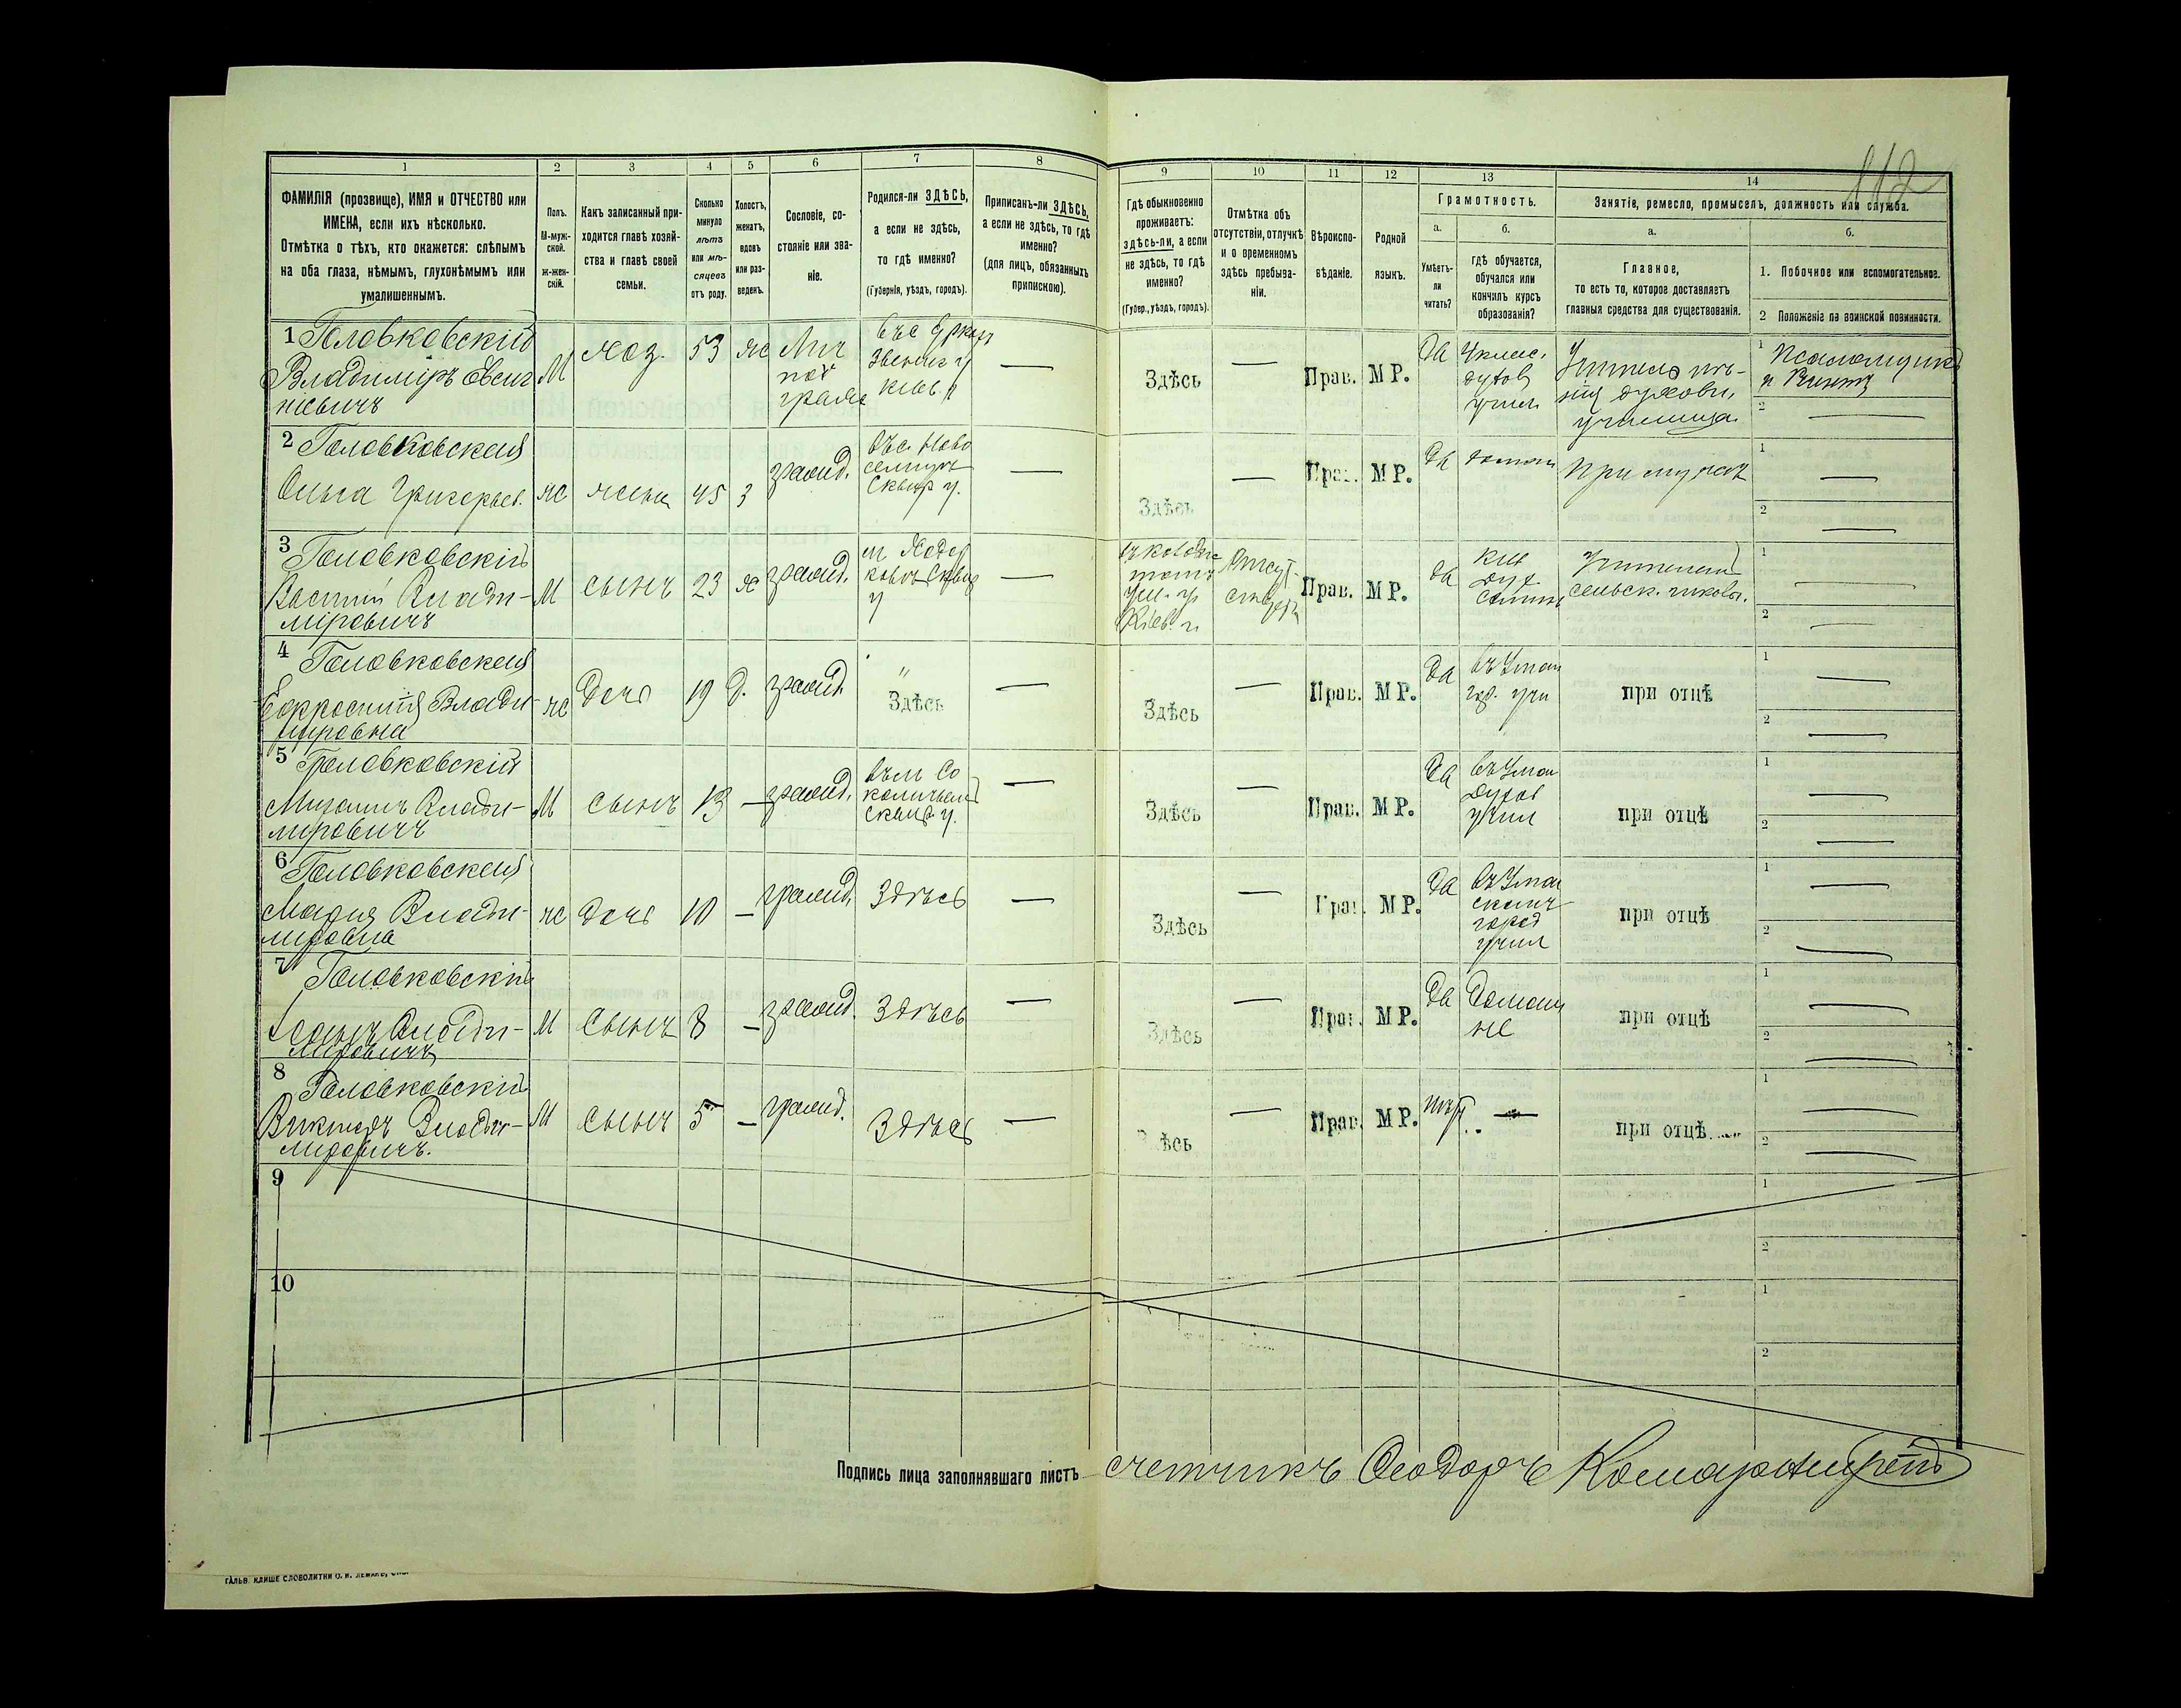 112
1 2 3 4 5 6 7 8 9 10 11 12 13 14
ФАМИЛІЯ (прозвище), ИМЯ и ОТЧЕСТВО или
ИМЕНА, если ихъ нѣсколько.
Отмѣтка о тѣхъ, кто окажется: слѣпымъ
на оба глаза, нѣмымъ, глухонѣмымъ или
умалишеннымъ.
Полъ.
М-муж-
ской.
ж-жен-
скій.
Какъ записанный при-
ходится главѣ хозяй-
ства и главѣ своей
семьи.
Сколько
минуло
лѣтъ
или мѣ-
сяцевъ
отъ роду.
Холостъ,
женатъ,
вдовъ
или раз-
веденъ.
Сословіе, со-
стояніе или зва-
ніе.
Родился-ли ЗДѢСЬ,
а если не здѣсь,
то гдѣ именно?
(Губернія, уѣздъ, городъ).
Приписанъ-ли ЗДѢСЬ,
а если не здѣсь, то гдѣ
именно?
(для лицъ, обязанныхъ
припискою).
Гдѣ обыкновенно
проживаетъ:
здѣсь-ли, а если
не здѣсь, то гдѣ
именно?
(Губер., уѣздъ, городъ).
Отмѣтка объ
отсутствіи, отлучкѣ
и о временномъ
здѣсь пребыва-
ніи.
Вѣроиспо-
вѣданіе.
Родной
языкъ.
Грамотность.
а.
Умѣетъ-
ли
читать?
б.
гдѣ обучается,
обучался или
кончилъ курсъ
образованія?
Занятіе, ремесло, промыселъ, должность или служба.
а.
Главное,
то есть то, которое доставляетъ
главныя средства для существованія.
б.
1. Побочное или вспомогательное.
2 Положеніе по воинской повинности.
1 Головковскій
Владиміръ Евге-
ніевичъ
М
хоз.
53
ж
Лич
поч
гражд
Звениг у
Кіев. г
—
Здѣсь
—
Прав.
М Р.
да
4 клас.
духов
учил
Учитель пѣ-
нія духовн.
училища
1 Псаломщикъ
2 —
2 Головковская
Ольга Григорьев.
ж
жена
45
З
гражд.
Сквир у.
—
Здѣсь
—
Прав.
М Р.
да
домаш
При мужѣ
1 —
2 —
3 Головковскій
Василій Влади-
міровичъ
М
сынъ
23
х
гражд.
м Ходор
ковъ Сквир
у
—
Кіев. г.
Прав.
М Р.
да
Кіев
дух.
семин
Учитель
сельск. школы.
1 —
2 —
4 Головковская
Ефросинія Влади-
мировна
ж
дочь
19
д.
гражд
"
Здѣсь
—
Здѣсь
—
Прав.
М Р.
да
въ Уман
гор. учи
при отцѣ
1 —
2 —
5 Головковскій
Михаилъ Влади-
мировичъ
М
сынъ
13
—
гражд.
Сквир у.
—
Здѣсь
—
Прав.
М Р.
да
въ Уман
духов
учил
при отцѣ
1 —
2 —
6 Головковская
Мария Влади-
мировна
ж
дочь
10
—
гражд.
Здѣсь
—
Здѣсь
—
Прав.
М Р.
да
въ Уман
скомъ
город
учил
при отцѣ
1 —
2 —
7 Головковскій
Влади-
мировичъ
М
сынъ
8
—
гражд.
Здѣсь
—
Здѣсь
—
Прав.
М Р.
да
Домаш
не
при отцѣ
1 —
2 —
8 Головковскій
Викторъ Влади-
мировичъ.
М
сынъ
5
—
гражд.
Здѣсь
—
Здѣсь
—
Прав.
М Р.
нѣт.
—
при отцѣ
1 —
2 —
9
1
2
10
1
2
Подпись лица заполнявшаго листъ счетчикъ Ѳеодоръ